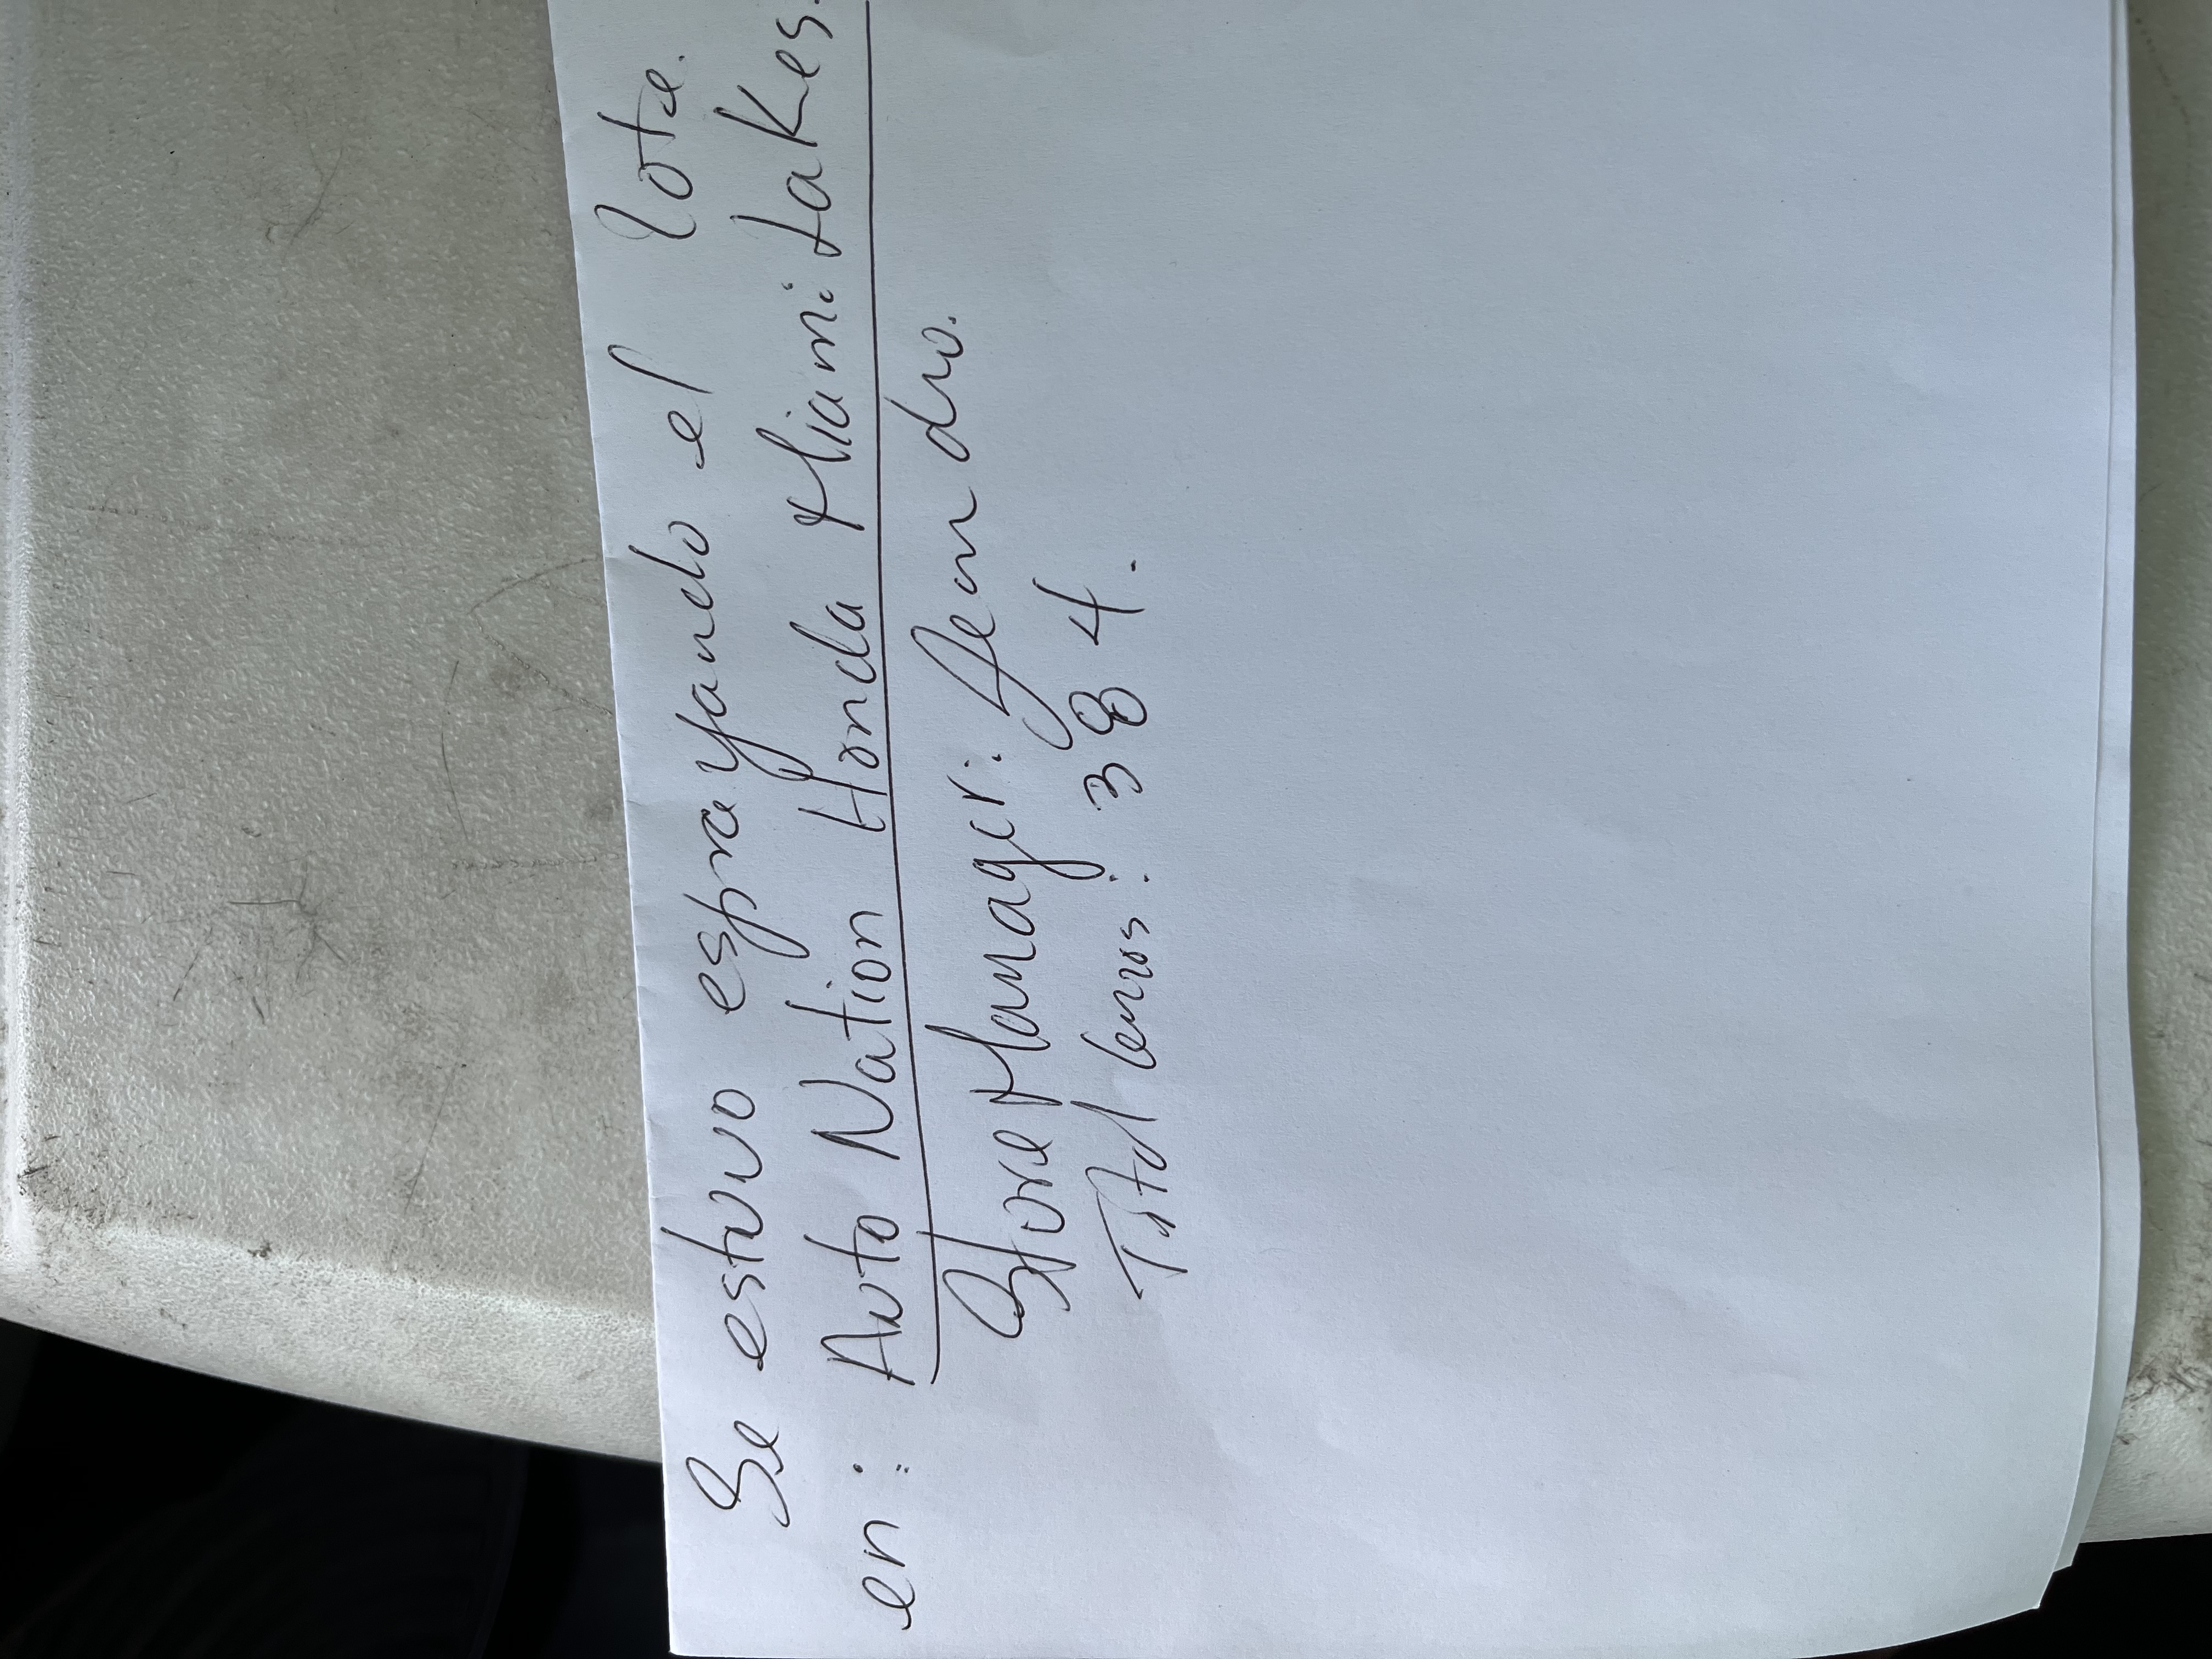 Se estuvo esprayando el lote.
en: Auto Nation Honda Miami Lakes.
Store Manager: Leandro.
Total carros: 384.